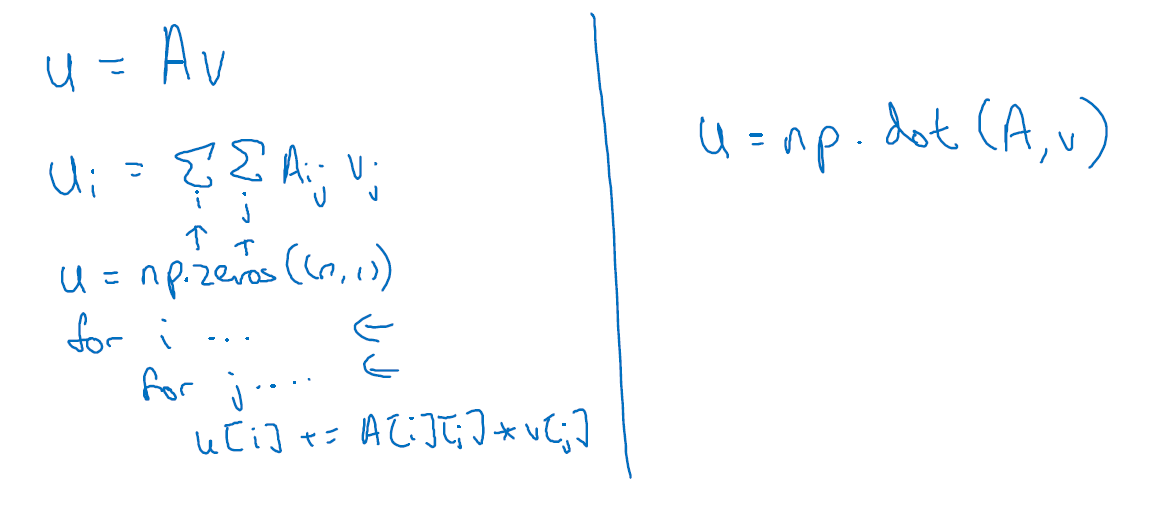 u = Av
u_i = Σ_i Σ_j A_ij v_j
↑ ↑
u = np.zeros((n,1))
for i ... ←
for j .... ←
u[i] += A[i][j] * v[j]
u = np.dot(A,v)